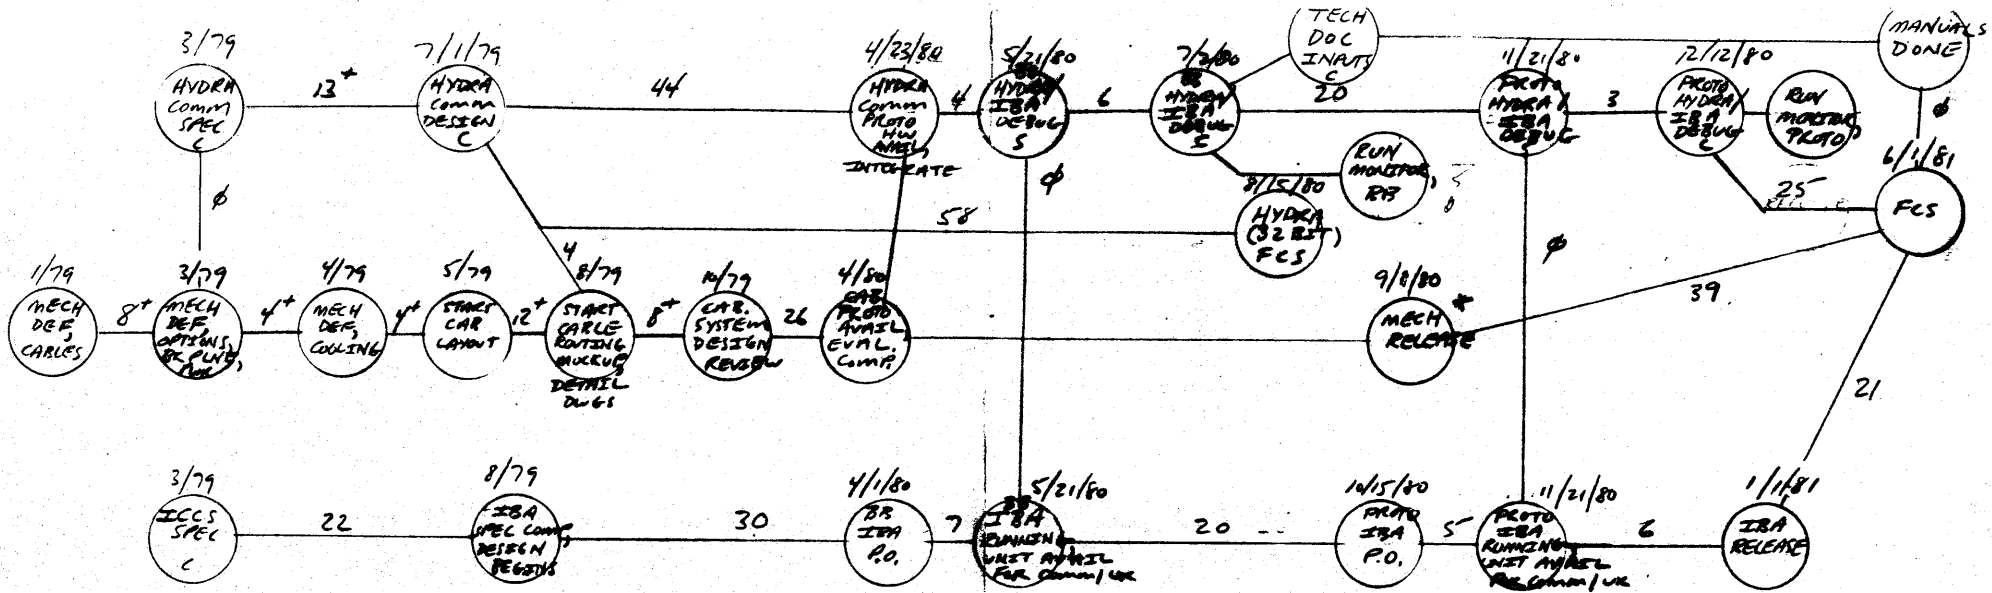 3/79
HYDRA
COMM
SPEC
C
13+
7/1/79
HYDRA
COMM
DESIGN
C
44
4/23/80
HYDRA
COMM
PROTO
HW
AVAIL,
INTEGRATE
4
5/21/80
BB
HYDRA/
IBA
DEBUG
S
6
7/2/80
BB
HYDRA/
IBA
DEBUG
C
TECH
DOC
INPUTS
C
20
11/21/80
PROTO
HYDRA/
IBA
DEBUG
S
3
12/12/80
PROTO
HYDRA/
IBA
DEBUG
C
RUN
MONITOR,
PROTO
MANUALS
DONE
φ
6/1/81
FCS
25
φ
RUN
MONITOR,
BB
8/15/80
HYDRA
(32 BIT)
FCS
58
4
φ
φ
1/79
MECH
DEF,
CABLES
8+
3/79
MECH
DEF,
OPTIONS,
BK PLNE,
4+
4/79
MECH
DEF,
COOLING
4+
5/79
START
CAB
LAYOUT
12+
8/79
START
CABLE
ROUTING
MOCKUP,
DETAIL
DWGS
8+
10/79
CAB.
SYSTEM
DESIGN
REVIEW
26
4/80
CAB
PROTO
AVAIL
EVAL.
COMP.
9/8/80
*
MECH
RELEASE
39
21
3/79
ICCS
SPEC
C
22
8/79
IBA
SPEC COMP,
DESIGN
BEGINS
30
4/1/80
BB
IBA
P.O.
7
5/21/80
BB
IBA
RUNNING
UNIT AVAIL
FOR COMM/UK
20
10/15/80
PROTO
IBA
P.O.
5
11/21/80
PROTO
IBA
RUNNING
UNIT AVAIL
FOR COMM/UK
6
1/1/81
IBA
RELEASE